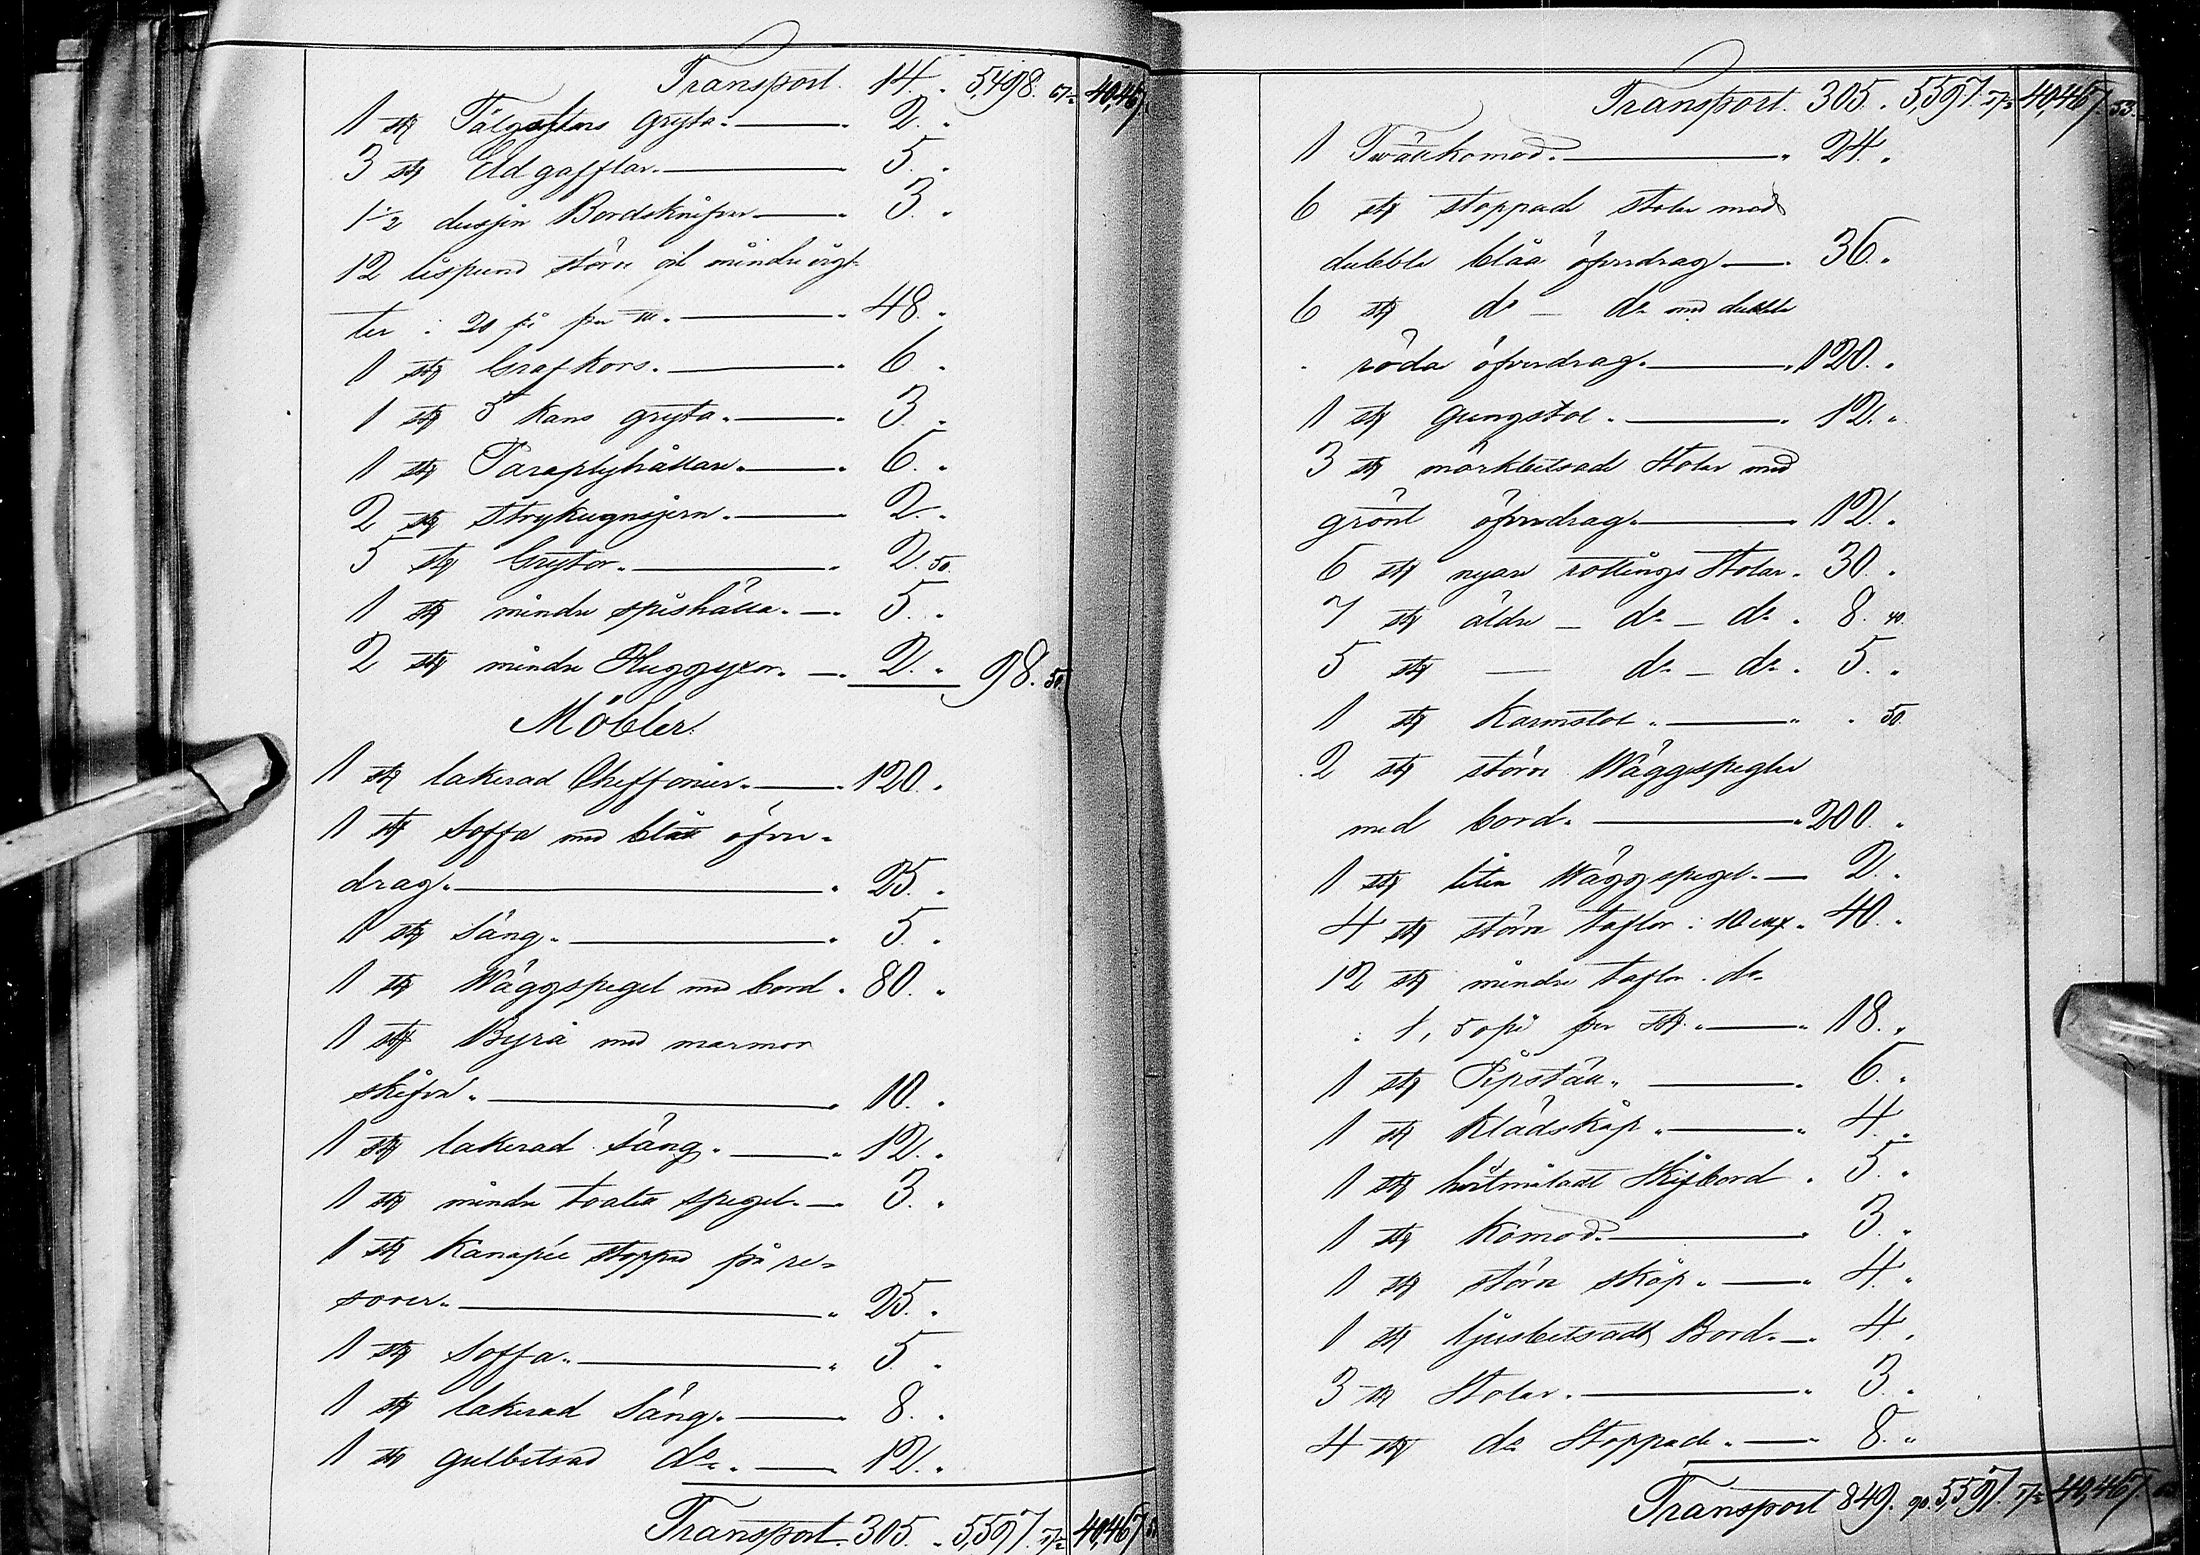 Transport. 14. " 5,498. 67½ 40,467.
1 st Täljstens gryta. — 2. "
3 st Eldgafflar. — 5. "
1½ dussin Bordsknifvar — 3. "
12 lispund större och mindre vigt-
ter : 20 pi per — 48. "
1 st Grafkors. — 6. "
1 st 5 kans gryta. — 3. "
1 st Paraplyhållare. — 6. "
2 st Strykugnsjern. — 2. "
5 st Grytor. — 2. 50.
1 st mindre spishälla. — 5. "
2 st mindre Huggyxor. — 2. " 98. 50.
Möbler.
1 st lakerad Cheffonier. — 120. "
1 st Soffa med blått öfver-
drag. — 25. "
1 st Säng. — 5. "
1 st Wäggspegel med bord. 80. "
1 st Byrå med marmor
skifva. — 10. "
1 st lakerad Säng. — 12. "
1 st mindre toalett spegel. — 3. "
1 st Kanapée stoppad på re-
sorer. — 25. "
1 st Soffa. — 5. "
1 st lakerad Säng. — 8. "
1 st gulbetsad do. — 12. "
Transport. 305. " 5,597. 17½ 40,467. 53.
Transport. 305. " 5,597. 17½ 40,467. 53.
1 Tvättkomod. — 24. "
6 st stoppade stolar med
dubbla blåa öfverdrag — 36. "
6 st do — do med dubbla
röda öfverdrag. — 120. "
1 st Gungstol. — 12. "
3 st mörkbetsade Stolar med
grönt öfverdrag. — 12. "
6 st nyare rottings Stolar. 30. "
7 st äldre — do — do. 8. 40.
5 st — do — do. 5. "
1 st Karmstol. — " 50.
2 st större Wäggspeglar
med bord. — 200. "
1 st liten Wäggspegel. — 2. "
4 st större taflor : 10 mk. 40. "
12 st mindre taflor. do
: 1, 50 pi per st. — 18. "
1 st Pipställ. — 6. "
1 st Klädskåp. — 4. "
1 st hvitmåladt Skifbord. 5. "
1 st Komod. — 3. "
1 st större skåp. — 4. "
1 st ljusbetsadt Bord. — 4. "
3 st Stolar. — 3. "
4 st do Stoppade. — 8. "
Transport 849. 90. 5,597. 17½ 40,467.